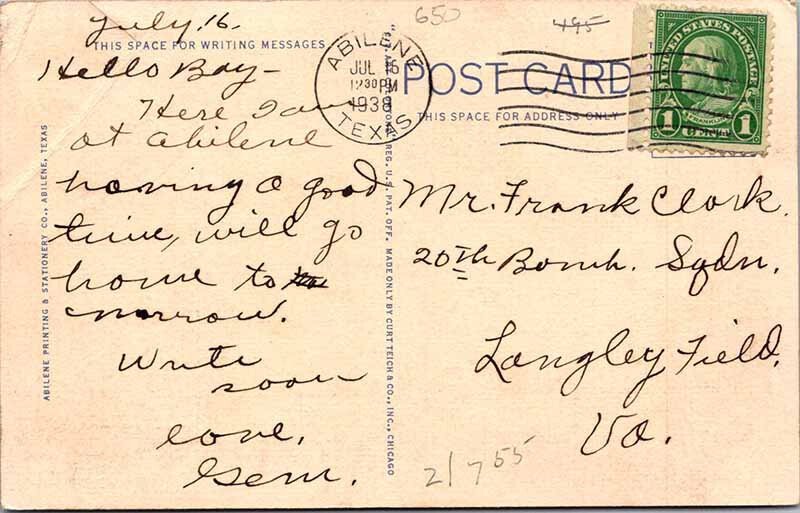 July 16.
650
495
THIS SPACE FOR WRITING MESSAGES
Hello Boy –
Here I am
at Abilene
having a good
time, will go
home to
morrow.
Write
soon
Love,
Gem.
ABILENE PRINTING & STATIONERY CO., ABILENE, TEXAS
ABILENE
JUL 16
12 30 PM
1938
TEXAS
REG. U.S. PAT. OFF. MADE ONLY BY CURT TEICH & CO., INC., CHICAGO
POST CARD
THIS SPACE FOR ADDRESS ONLY
UNITED STATES POSTAGE
FRANKLIN
1 1
Mr. Frank Clark.
20th Bomb. Sqdn.
Langley Field,
Va.
2/7 55